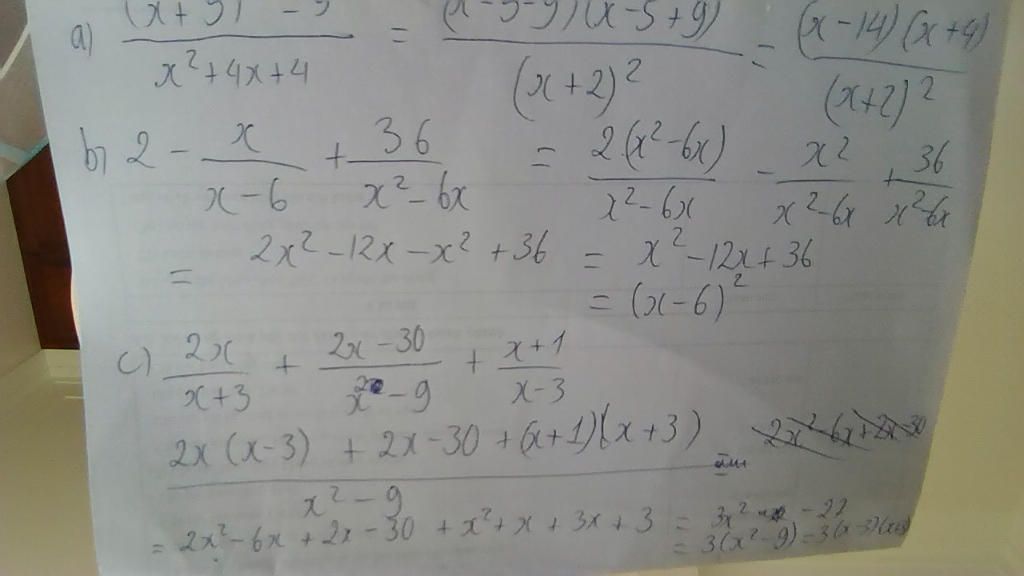 a) (x+5)² - 9 / x²+4x+4 = (x-5-9)(x-5+9) / (x+2)² = (x-14)(x+4) / (x+2)²
b) 2 - x / x-6 + 36 / x²-6x = 2(x²-6x) / x²-6x - x² / x²-6x + 36 / x²-6x
= 2x²-12x-x²+36 = x²-12x+36
= (x-6)²
c) 2x / x+3 + 2x-30 / x²-9 + x+1 / x-3
2x(x-3) + 2x-30 + (x+1)(x+3) / x²-9
2x²-6x+2x-30
= 2x²-6x+2x-30+x²+x+3x+3 = 3x² -27
= 3(x²-9)=3(x-3)(x+3)